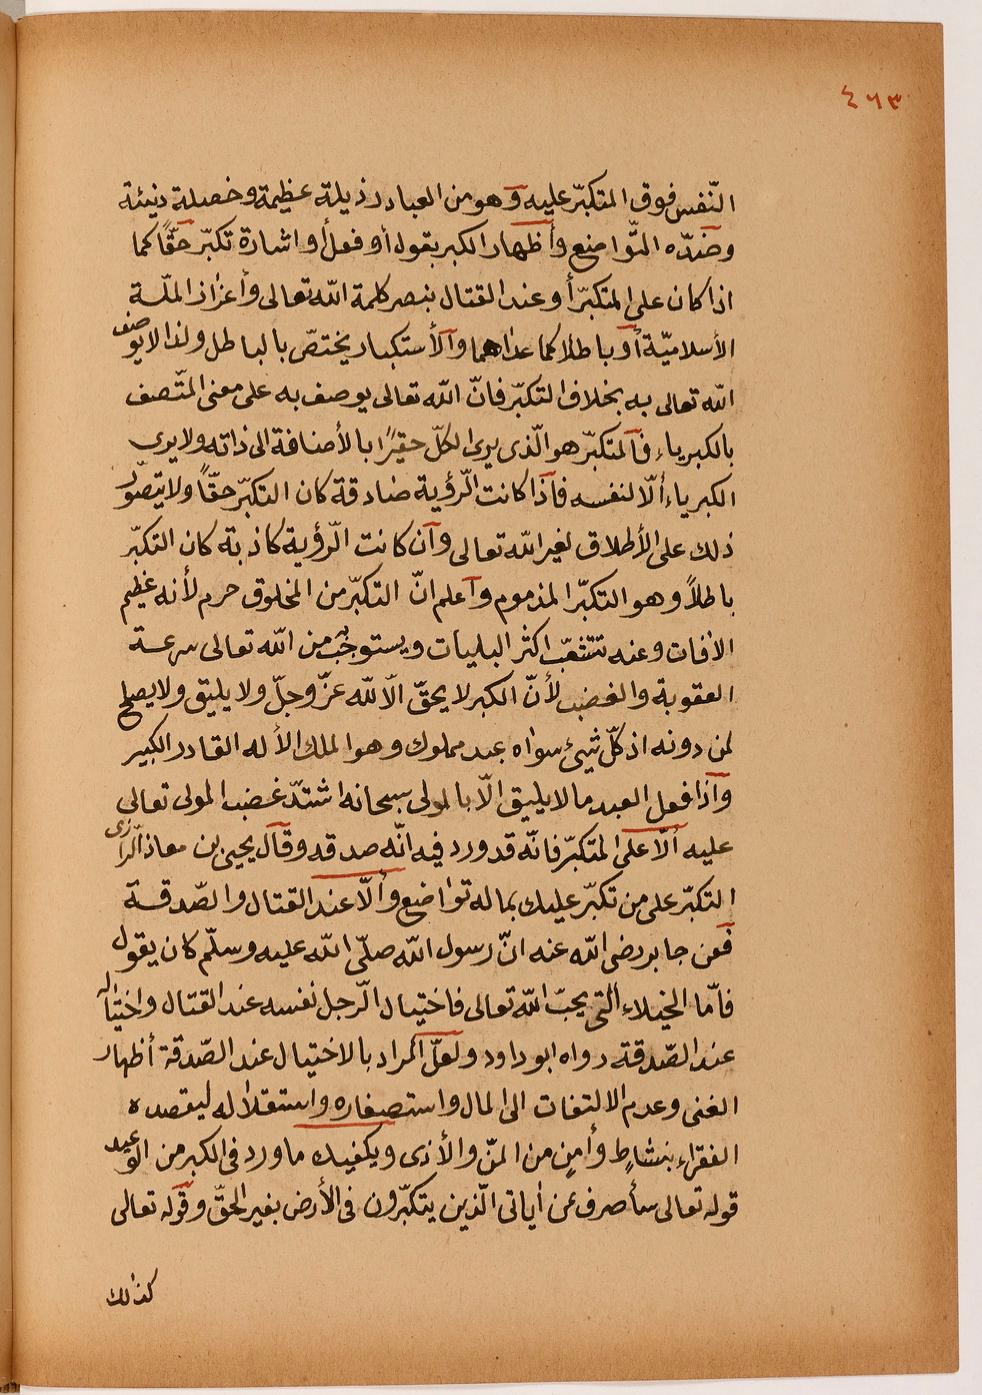 ٤٦٣
النّفس فوق المتكبّر عليه وهو من العباد رذيلة عظيمة وخصلة دنيئة
وضدّه التّواضع وأظهار الكبر بقول أو فعل أو اشارة تكبّر حقّاً كما
اذا كان على المتكبّر أو عند القتال بنصر كلمة الله تعالى وأعزاز الملّة
الأسلاميّة أو باطلا كما عداهما والأستكبار يختصّ بالباطل ولذا لا يوصف
الله تعالى به بخلاف التكبّر فانّ الله تعالى يوصف به على معنى المتّصف
بالكبرياء فالمتكبّر هو الّذى يرى الكلّ حقيرًا بالأضافة الى ذاته ولا يرى
الكبرياء ألّا لنفسه فاذا كانت الرّؤية صادقة كان التكبّر حقّاً ولا يتصوّر
ذلك على الأطلاق لغير الله تعالى وان كانت الرّؤية كاذبة كان التكبّر
باطلاً وهو التكبّر المذموم واعلم انّ التكبّر من المخلوق حرم لأنه عظيم
الآفات وعنه تتشعّب اكثر البليات ويستوجب به من الله تعالى سرعة
العقوبة والغضب لأنّ الكبر لا يحقّ الّا لله عزّ وجلّ ولا يليق ولا يصلح
لمن دونه اذ كلّ شيئ سواه عبد مملوك وهو الملك الأله القادر الكبير
واذا فعل العبد ما لا يليق الّا بالمولى سبحانه اشتدّ غضب المولى تعالى
عليه ألّا على المتكبّر فانّه قد ورد فيه انّه صدقه وقال يحيى بن معاذ الرّازى
التكبّر على من تكبّر عليك بماله تواضع وألّا عند القتال والصّدقة
فعن جابر رضى الله عنه انّ رسول الله صلّى الله عليه وسلّم كان يقول
فأمّا الخيلاء التى يحبّ الله تعالى فاختيال الرّجل نفسه عند القتال واختياله
عند الصّدقة رواه ابو داود ولعلّ المراد بالاختيال عند الصّدقة أظهار
الغنى وعدم الالتفات الى المال واستصغاره واستقلاله ليقصده
الفقراء بنشاطٍ وأمنٍ من المنّ والأذى ويكفيك ما ورد فى الكبر من الوعيد
قوله تعالى سأصرف عن أياتى الّذين يتكبّرون فى الأرض بغير الحقّ وقوله تعالى
كذلك